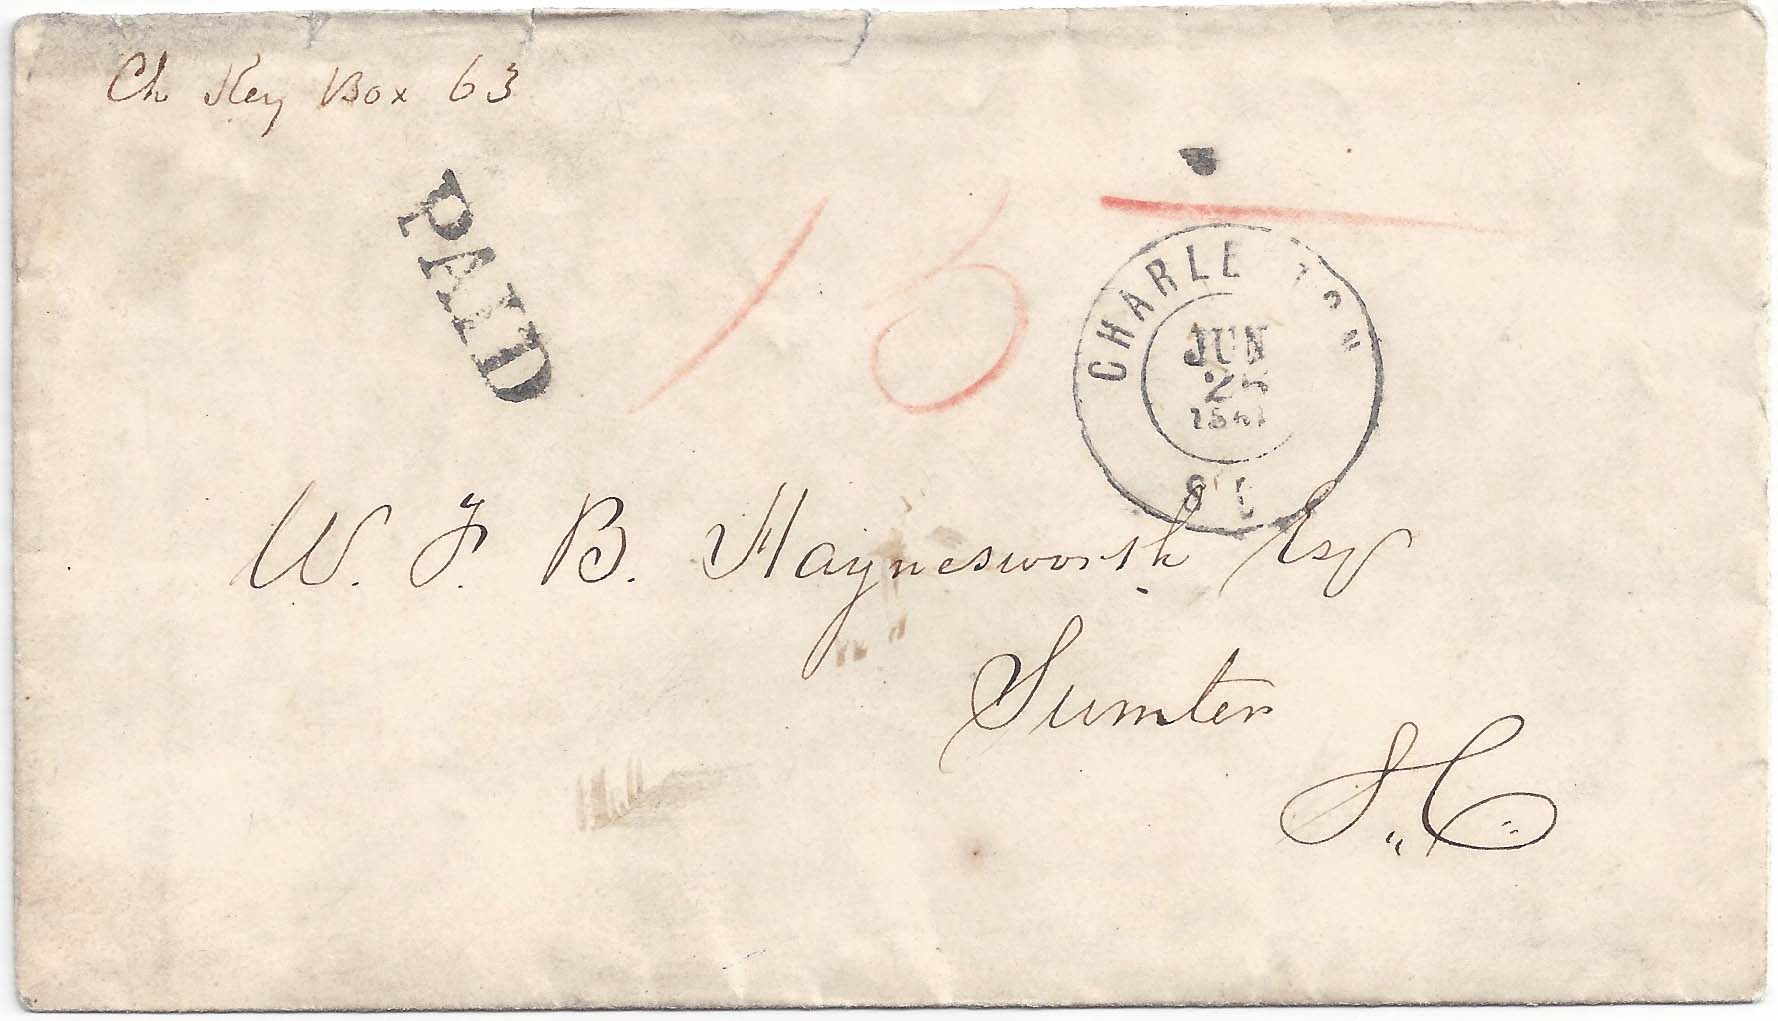 Ch Key Box 63
PAID
15
CHARLE TON
JUN
1861
W. F. B. Haynesworth Esq
Sumter
S.C